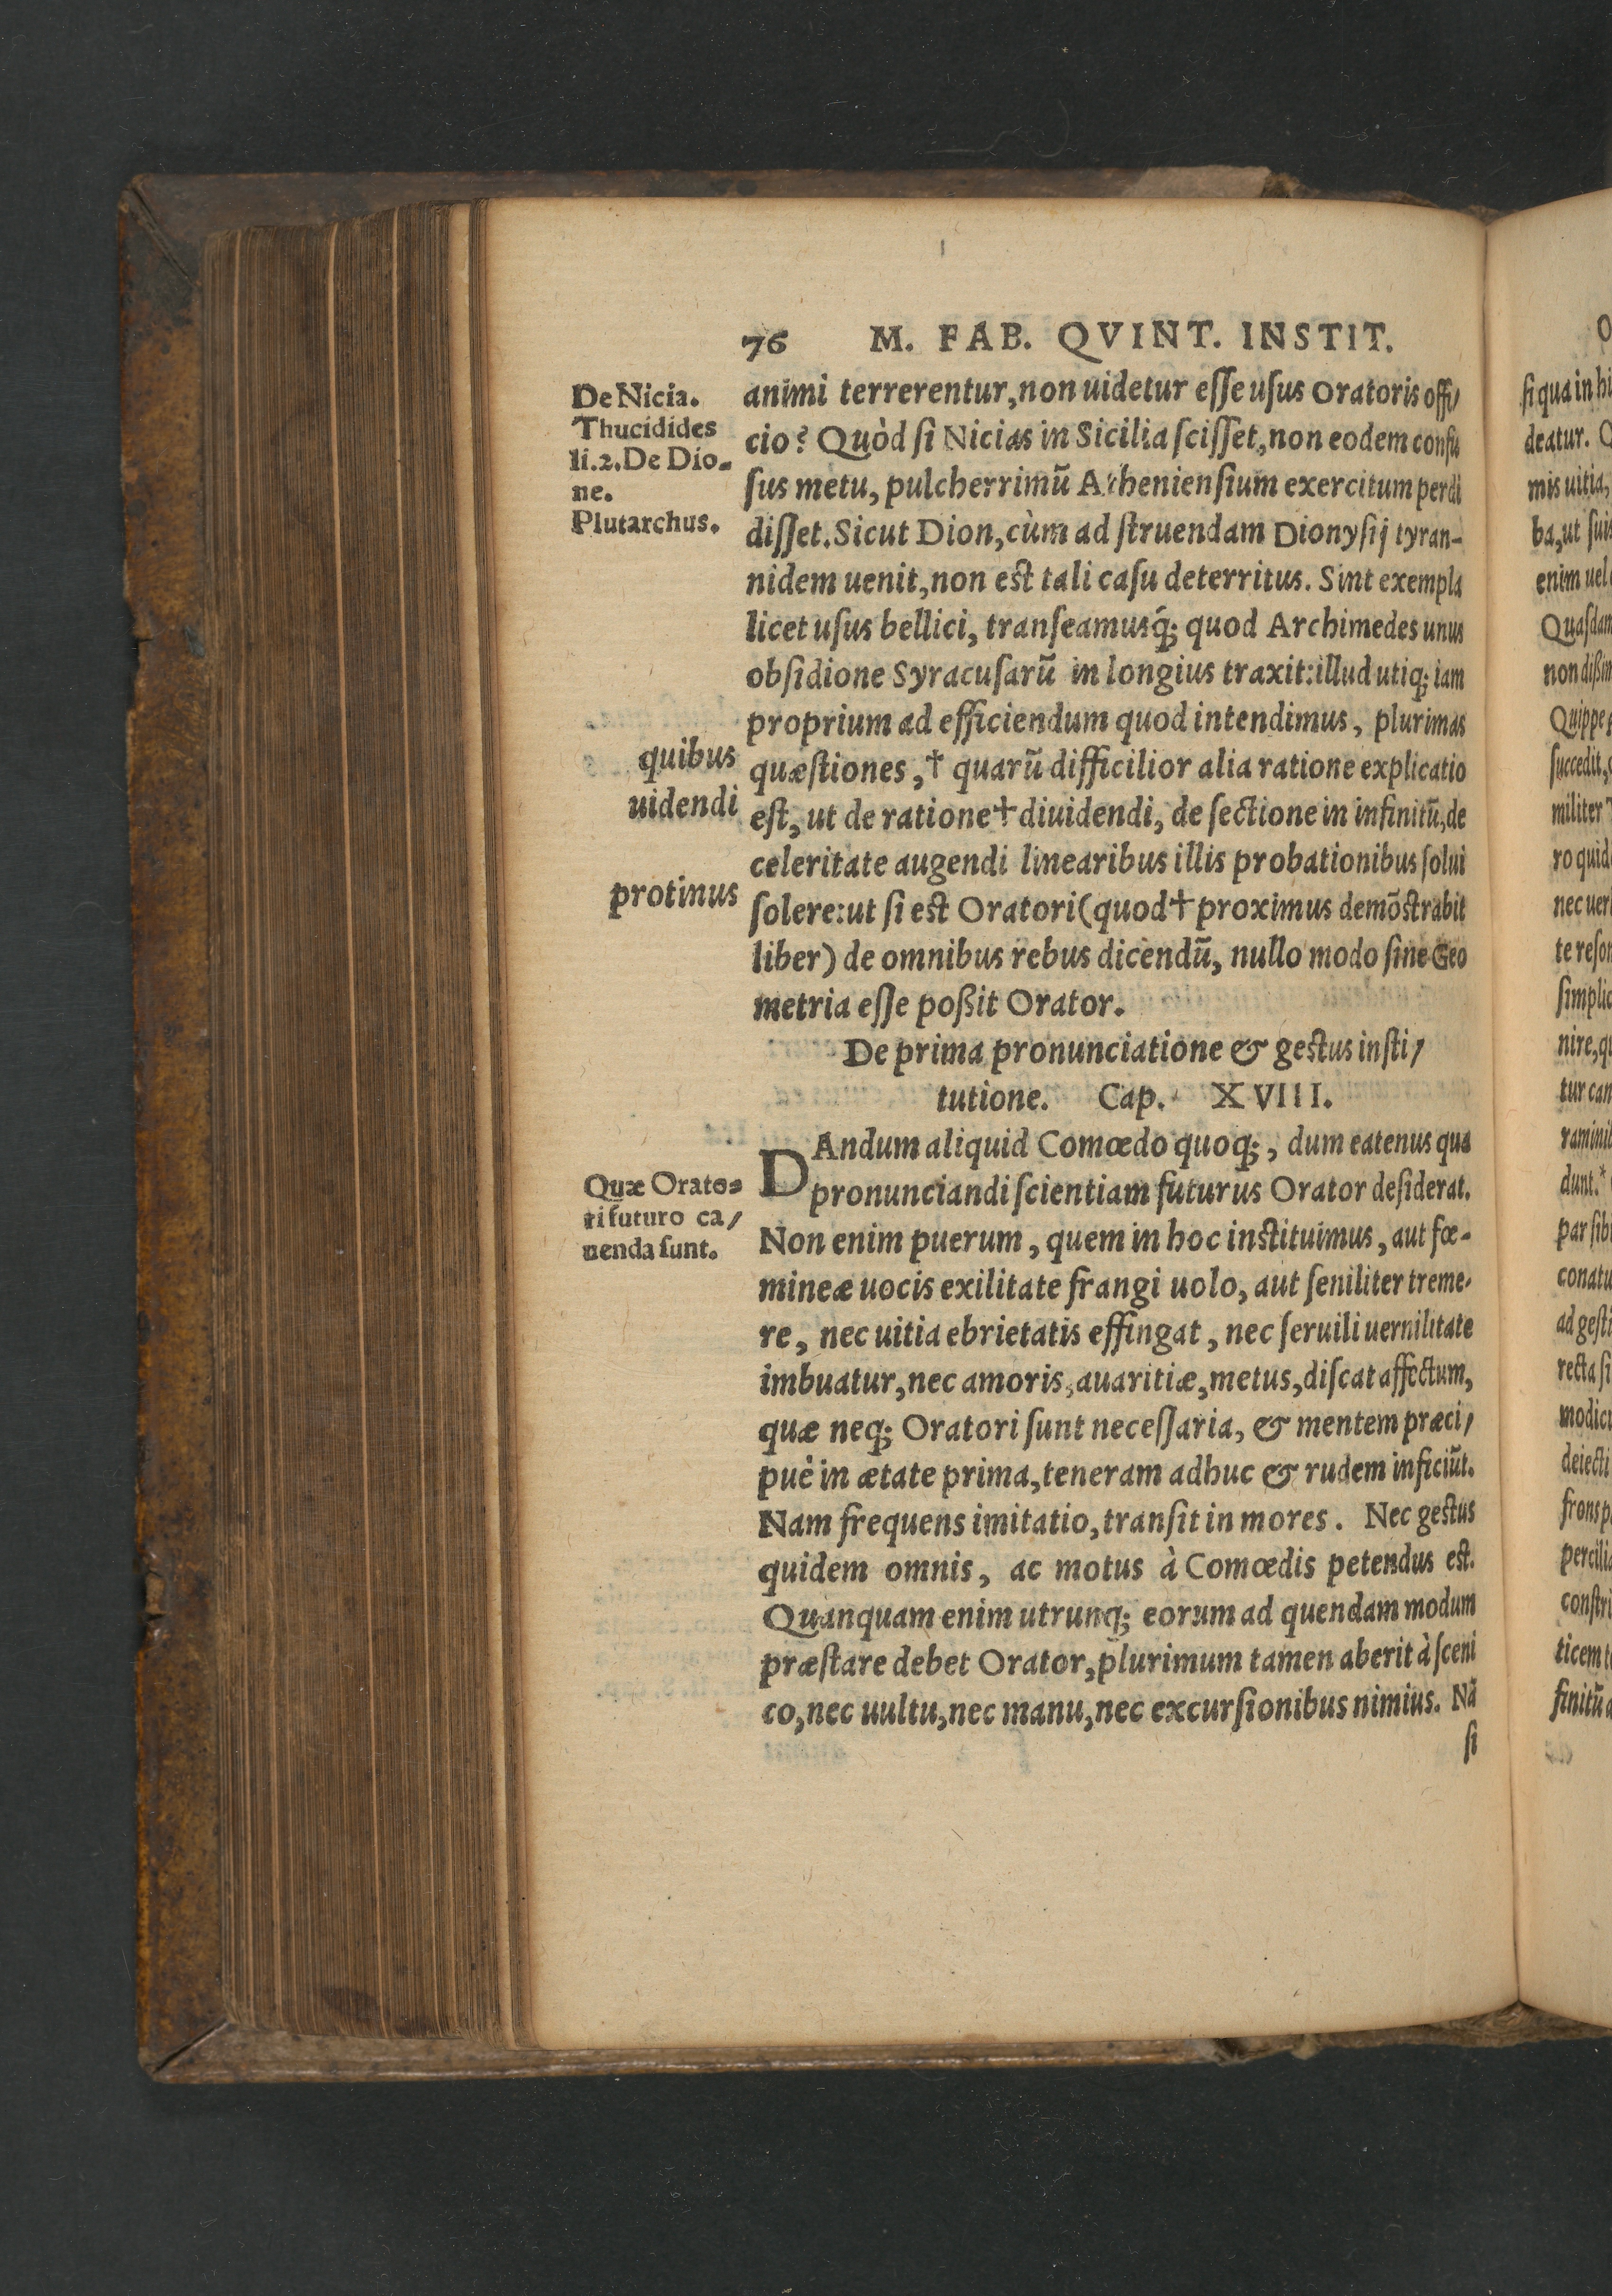 76 M. FAB. QVINT. INSTIT.
De Nicia.
Thucidides
li.2. De Dio-
ne.
Plutarchus.
animi terrerentur, non uidetur eſſe uſus Oratoris offi/
cio? Quòd ſi Nicias in Sicilia ſciſſet, non eodem confu
ſus metu, pulcherrimũ Athenienſium exercitum perdi
diſſet. Sicut Dion, cùm ad ſtruendam Dionyſij tyran-
nidem uenit, non eſt tali caſu deterritus. Sint exempla
licet uſus bellici, tranſeamusq́; quod Archimedes unus
obſidione Syracuſarũ in longius traxit: illud utiq; iam
proprium ad efficiendum quod intendimus, plurimas
quibus
quæſtiones, † quarũ difficilior alia ratione explicatio
uidendi
eſt, ut de ratione † diuidendi, de ſectione in infinitũ, de
celeritate augendi linearibus illis probationibus ſolui
protinus
ſolere: ut ſi eſt Oratori (quod † proximus demõſtrabit
liber) de omnibus rebus dicendũ, nullo modo ſine Geo
metria eſſe poßit Orator.
De prima pronunciatione & geſtus inſti/
tutione. Cap. XVIII.
DAndum aliquid Comœdo quoq;, dum eatenus qua
pronunciandi ſcientiam futurus Orator deſiderat.
Quæ Orato-
ri futuro ca/
uenda ſunt.
Non enim puerum, quem in hoc inſtituimus, aut fœ-
mineæ uocis exilitate frangi uolo, aut ſeniliter treme-
re, nec uitia ebrietatis effingat, nec ſeruili uernilitate
imbuatur, nec amoris, auaritiæ, metus, diſcat affectum,
quæ neq; Oratori ſunt neceſſaria, & mentem præci/
puè in ætate prima, teneram adhuc & rudem inficiũt.
Nam frequens imitatio, tranſit in mores. Nec geſtus
quidem omnis, ac motus à Comœdis petendus eſt.
Quanquam enim utrunq; eorum ad quendam modum
præſtare debet Orator, plurimum tamen aberit à ſceni
co, nec uultu, nec manu, nec excurſionibus nimius. Nã
ſi